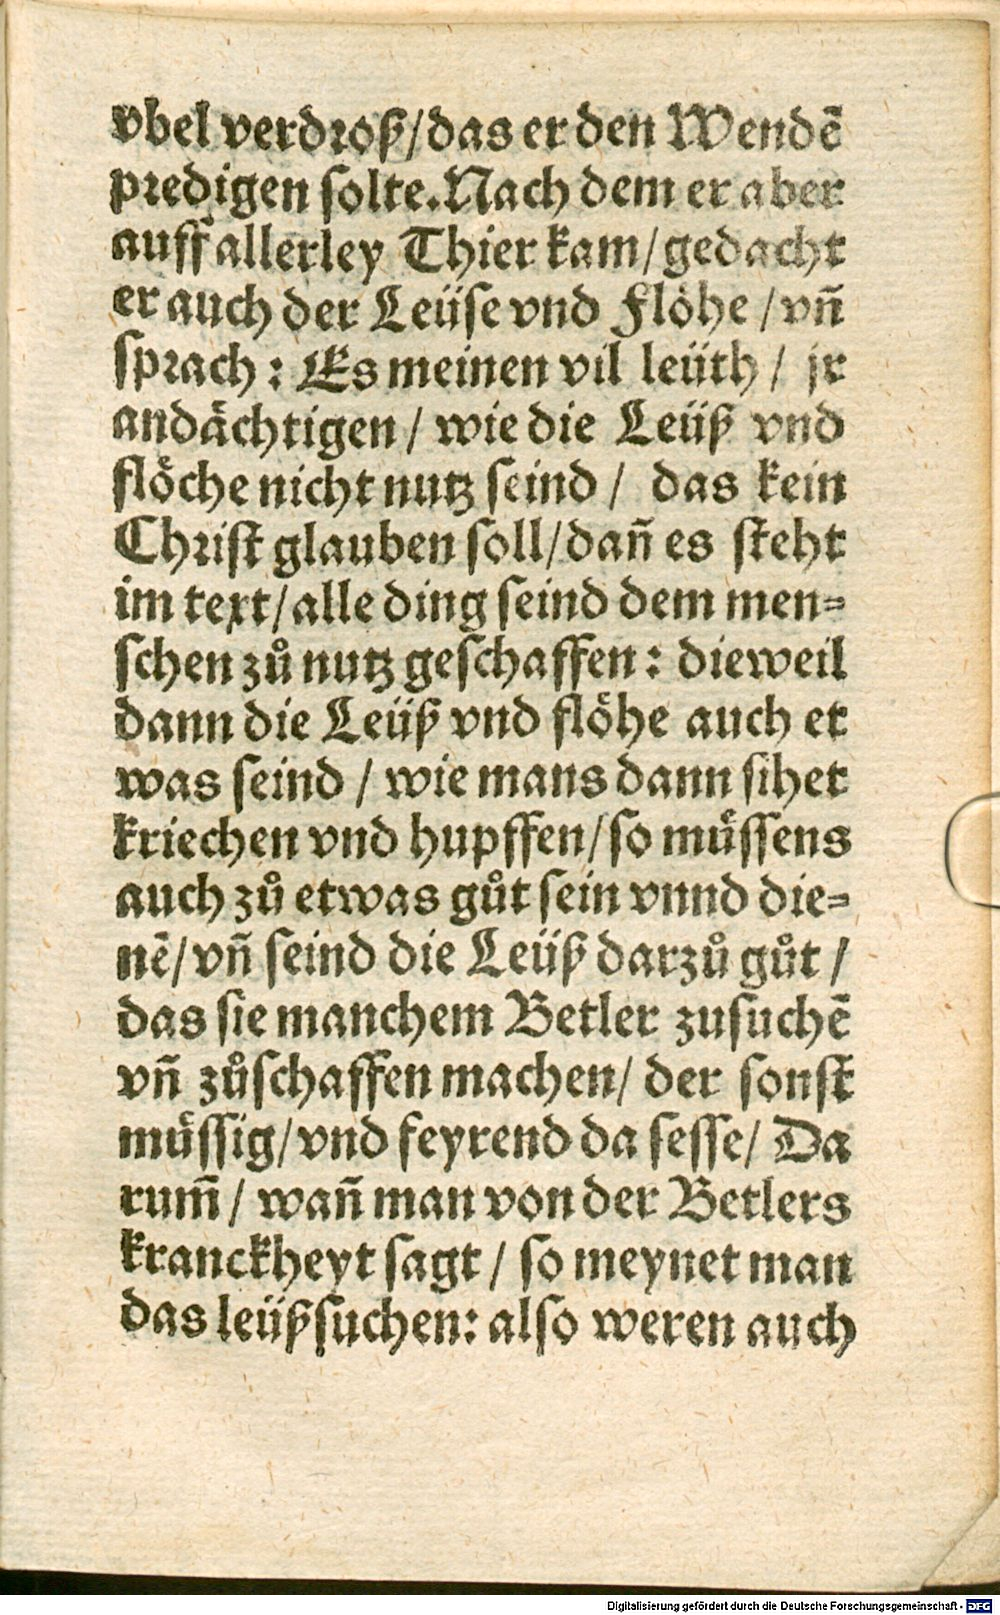 vbel verdroß/das er den Wendē
predigen solte. Nach dem er aber
auff allerley Thier kam/gedacht
er auch der Leüse vnd Flöhe /vñ
sprach: Es meinen vil leüth/ jr
andächtigen/ wie die Leüß vnd
flöche nicht nutz seind/ das kein
Christ glauben soll/dañ es steht
im text/alle ding seind dem men-
schen zů nutz geschaffen: dieweil
dann die Leüß vnd flöhe auch et
was seind / wie mans dann sihet
kriechen vnd hupffen/so müssens
auch zů etwas gůt sein vnnd die-
nē/vñ seind die Leüß darzů gůt /
das sie manchem Betler zusuchē
vñ zůschaffen machen/ der sonst
müssig/vnd feyrend da sesse/ Da
rum̃ / wañ man von der Betlers
kranckheyt sagt / so meynet man
das leüßsuchen: also weren auch
Digitalisierung gefördert durch die Deutsche Forschungsgemeinschaft - DFG